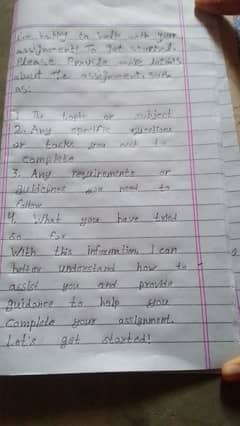 I'm happy to help with your
assignment! To get started,
Please Provide more details
about the assignment, such
as:
1. The topic or subject
2. Any specific questions
or tasks you need to
complete
3. Any requirements or
guidelines you need to
follow
4. What you have tried
so far
With this information, I can
better understand how to
assist you and provide
guidance to help you
complete your assignment.
Let's get started!